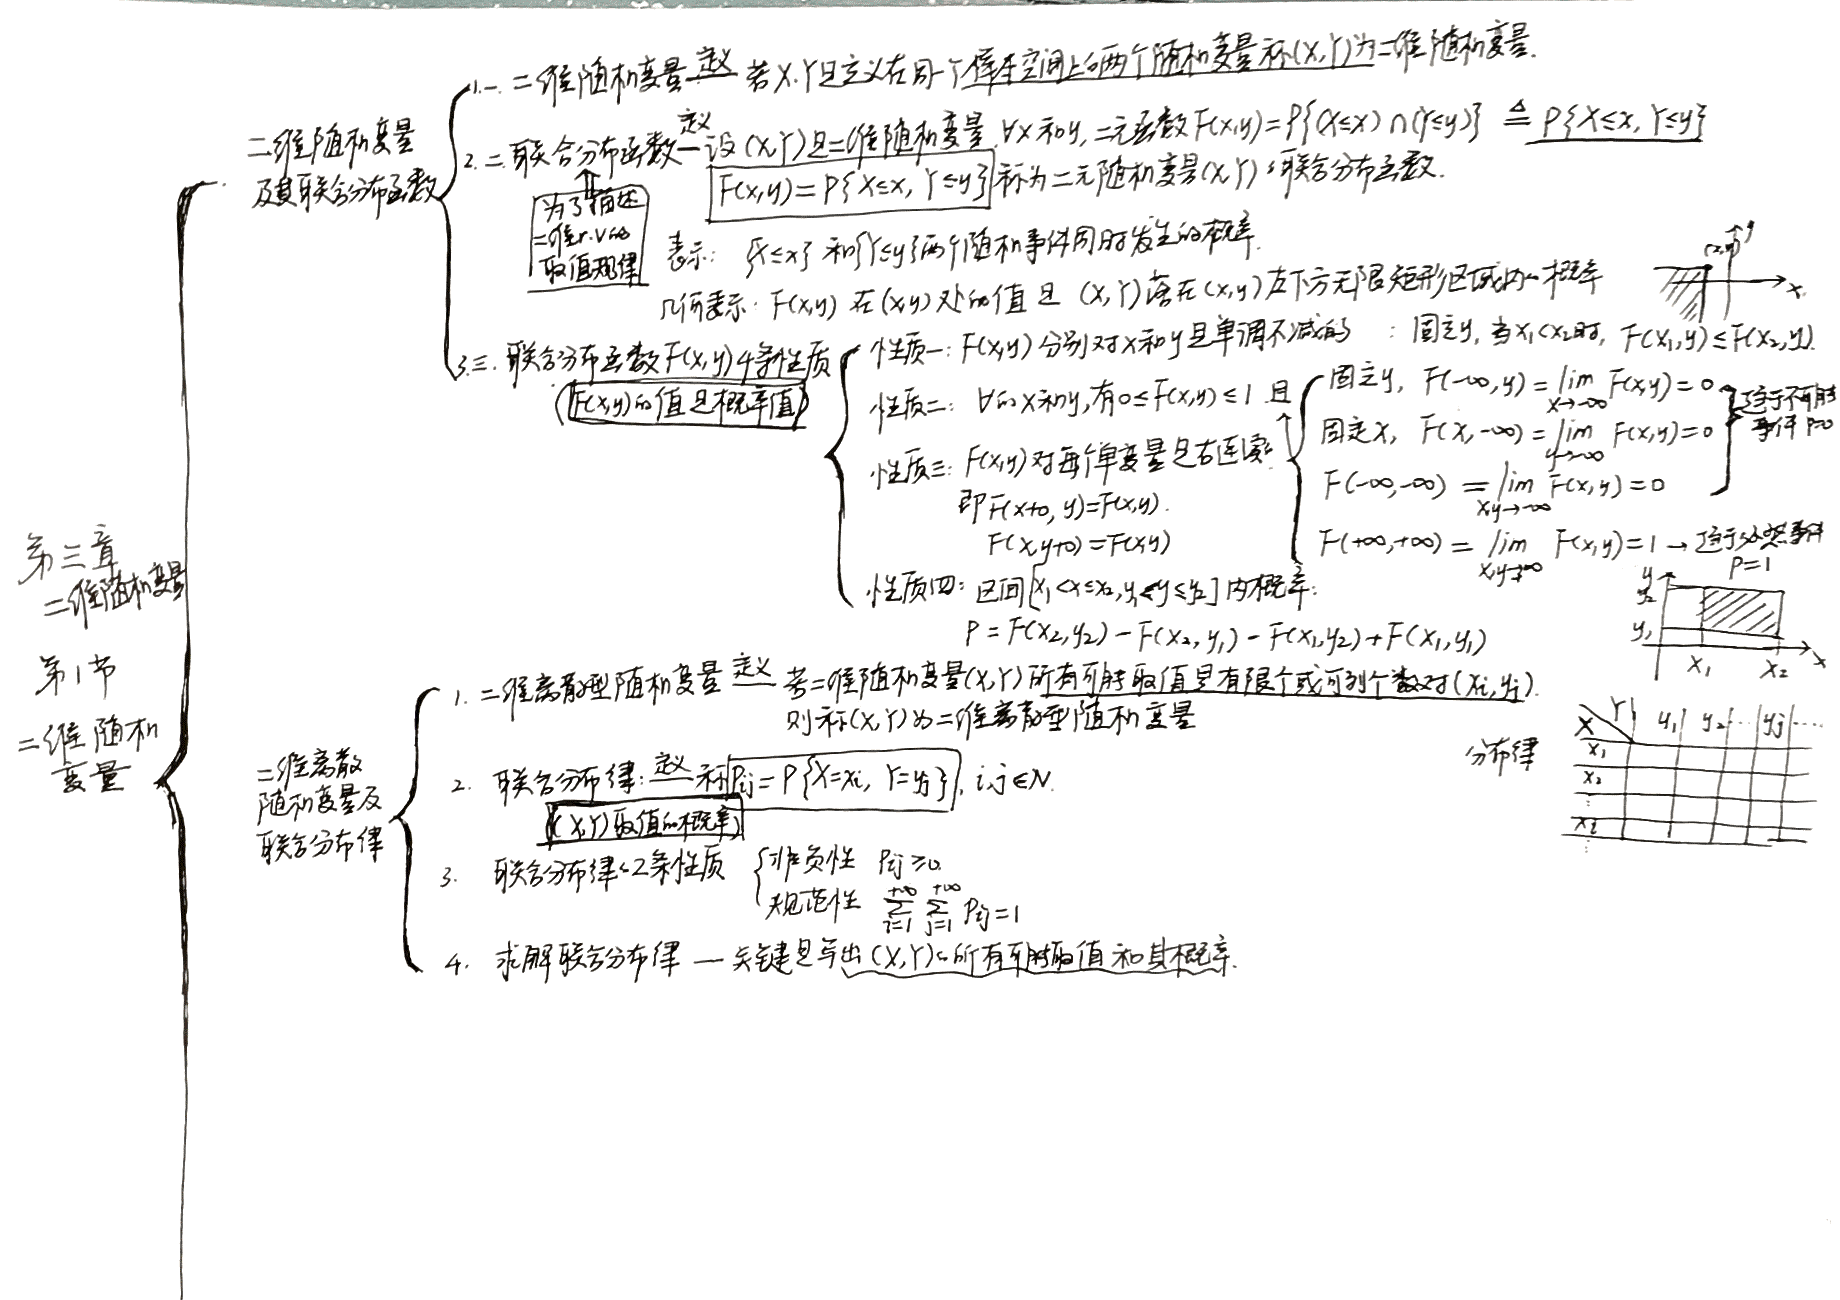 第三章
二维随机变量
第1节
二维随机
变量
二维随机变量
及其联合分布函数
1.一. 二维随机变量 定义 若X.Y是定义在同一个样本空间上的两个随机变量称(X,Y)为二维随机变量.
2.二 联合分布函数 定义 设(X,Y)是二维随机变量,∀x和y,二元函数F(x,y)=P{(X≤x)∩(Y≤y)} ≜ P{X≤x, Y≤y}
F(x,y)=P{X≤x, Y≤y} 称为二元随机变量(X,Y)的联合分布函数.
为了描述
二维r.v的
取值规律
表示: {X≤x}和{Y≤y}两个随机事件同时发生的概率.
几何表示: F(x,y)在(x,y)处的值是(X,Y)落在(x,y)左下方无限矩形区域内的概率
(x,y)
y
x
3.三. 联合分布函数F(x,y)4条性质
(F(x,y)的值是概率值)
性质一: F(x,y)分别对x和y是单调不减的 : 固定y, 当x₁<x₂时, F(x₁,y)≤F(x₂,y).
性质二: ∀的x和y,有0≤F(x,y)≤1 且
固定y, F(-∞,y)=lim x→-∞ F(x,y)=0
固定x, F(x,-∞)=lim y→-∞ F(x,y)=0
F(-∞,-∞)=lim x,y→-∞ F(x,y)=0
趋于不可能
事件 P=0
F(+∞,+∞)=lim x,y→+∞ F(x,y)=1 → 趋于必然事件
P=1
性质三: F(x,y)对每个单变量是右连续.
即F(x+0, y)=F(x,y).
F(x,y+0)=F(x,y)
性质四: 区间[x₁<x≤x₂,y₁<y≤y₂]内概率:
P=F(x₂,y₂)-F(x₂,y₁)-F(x₁,y₂)+F(x₁,y₁)
y
y₂
y₁
x₁ x₂
x
二维离散
随机变量及
联合分布律
1. 二维离散型随机变量 定义 若二维随机变量(X,Y)所有可能取值是有限个或可列个数对(xi,yj).
则称(X,Y)为二维离散型随机变量
2. 联合分布律: 定义 称Pij=P{X=xi, Y=yj}, i,j∈N.
((X,Y)取值的概率)
分布律
X Y y₁ y₂ ... yj ...
x₁
x₂
⋮
xi
⋮
3. 联合分布律的2条性质
非负性 Pij≥0.
规范性 +∞∑i=1 +∞∑j=1 Pij=1
4. 求解联合分布律 — 关键是写出(X,Y)的所有可能取值和其概率.